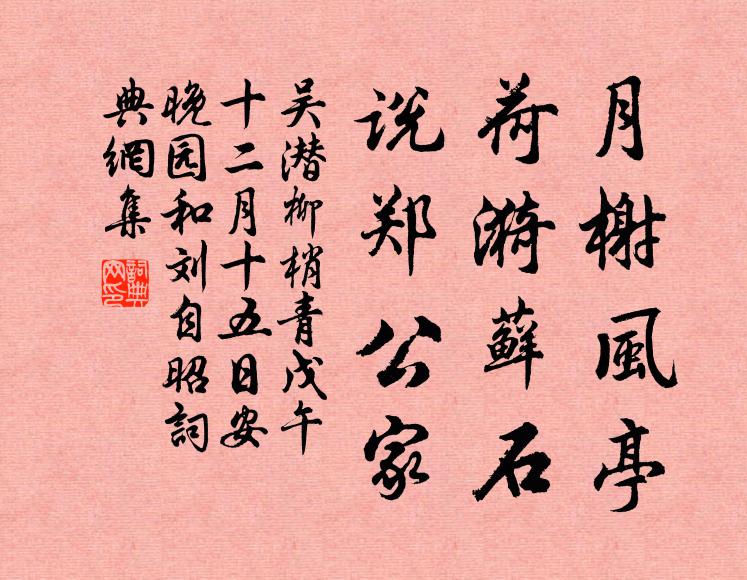 月榭風亭
荷漪蘚石
说郑公家
吴潜柳梢青戊午
十二月十五日安
晚园和刘自昭詞
典網集
詞典网印